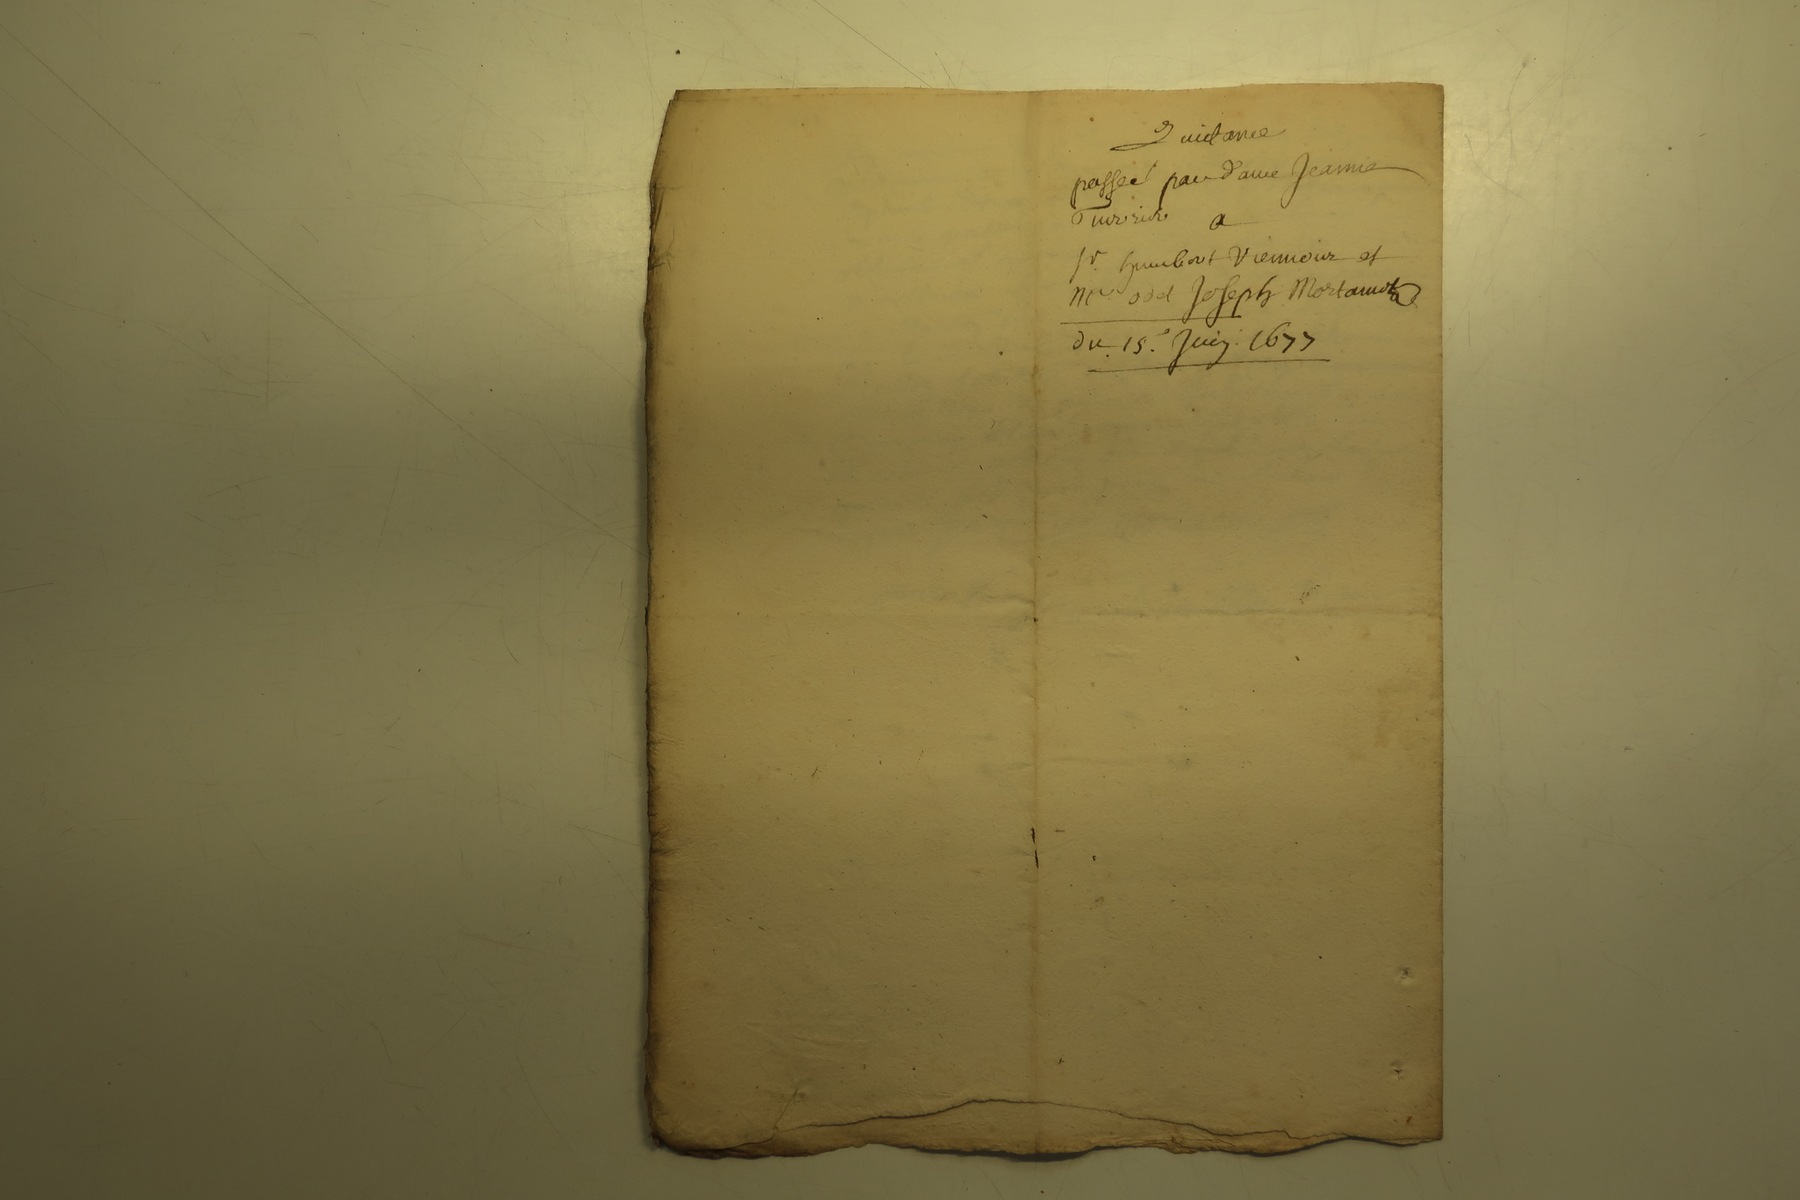 Quictance
passeé par dame Jeanne
a
Sr. humbert Viennois et
Mre oded Joseph Mortamet
du. 15.e Juin 1677